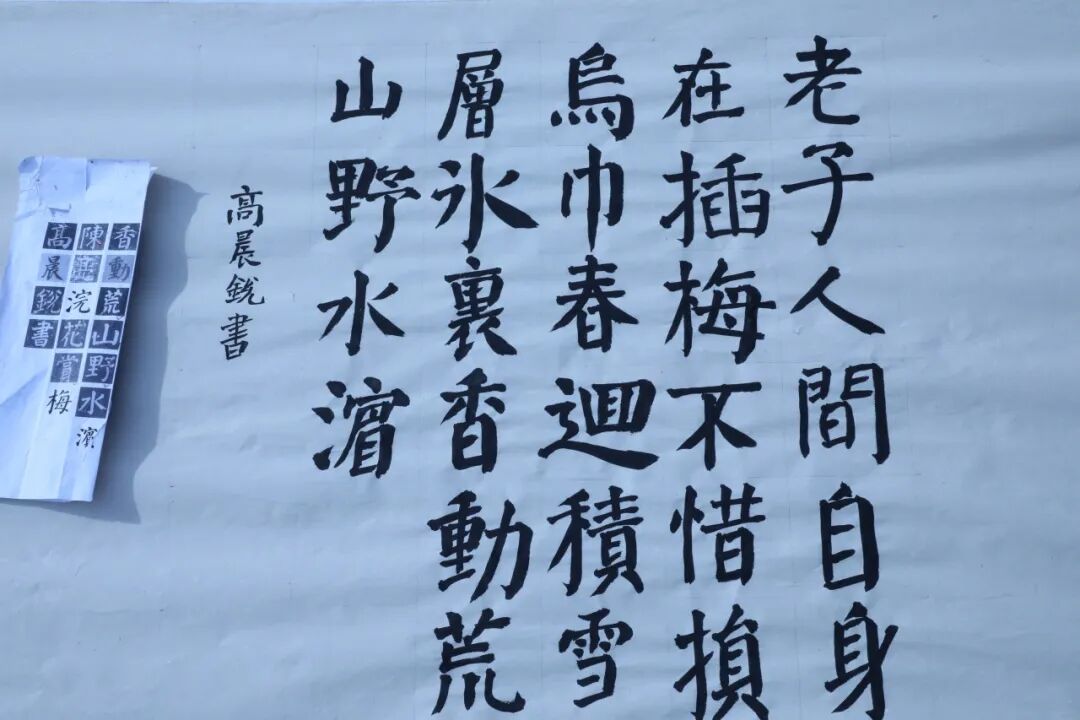 老子人間自身
在插梅不惜損
烏巾春迴積雪
層氷裏香動荒
山野水濱
高晨銳書
香動荒山野水濱
陳浣花賞梅
高晨銳書